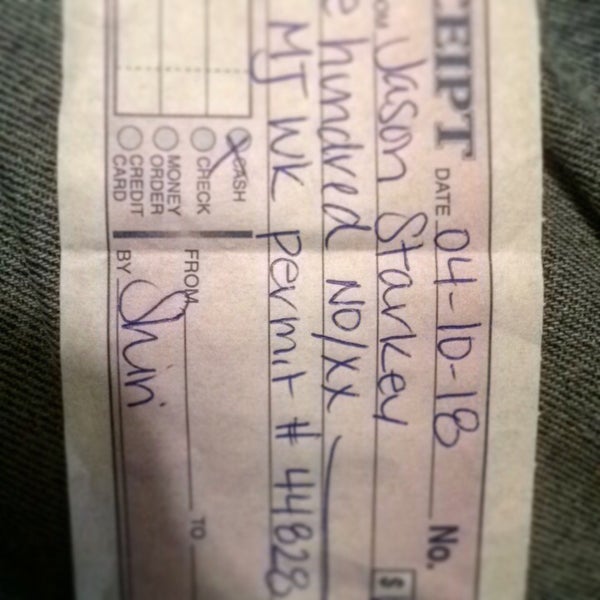 CEIPT DATE 04-10-18 No.
OM Jason Starkey $
e hundred NO/XX
MJ WK permit # 44828
CASH
CHECK
MONEY ORDER
CREDIT CARD
FROM TO
BY Shiri